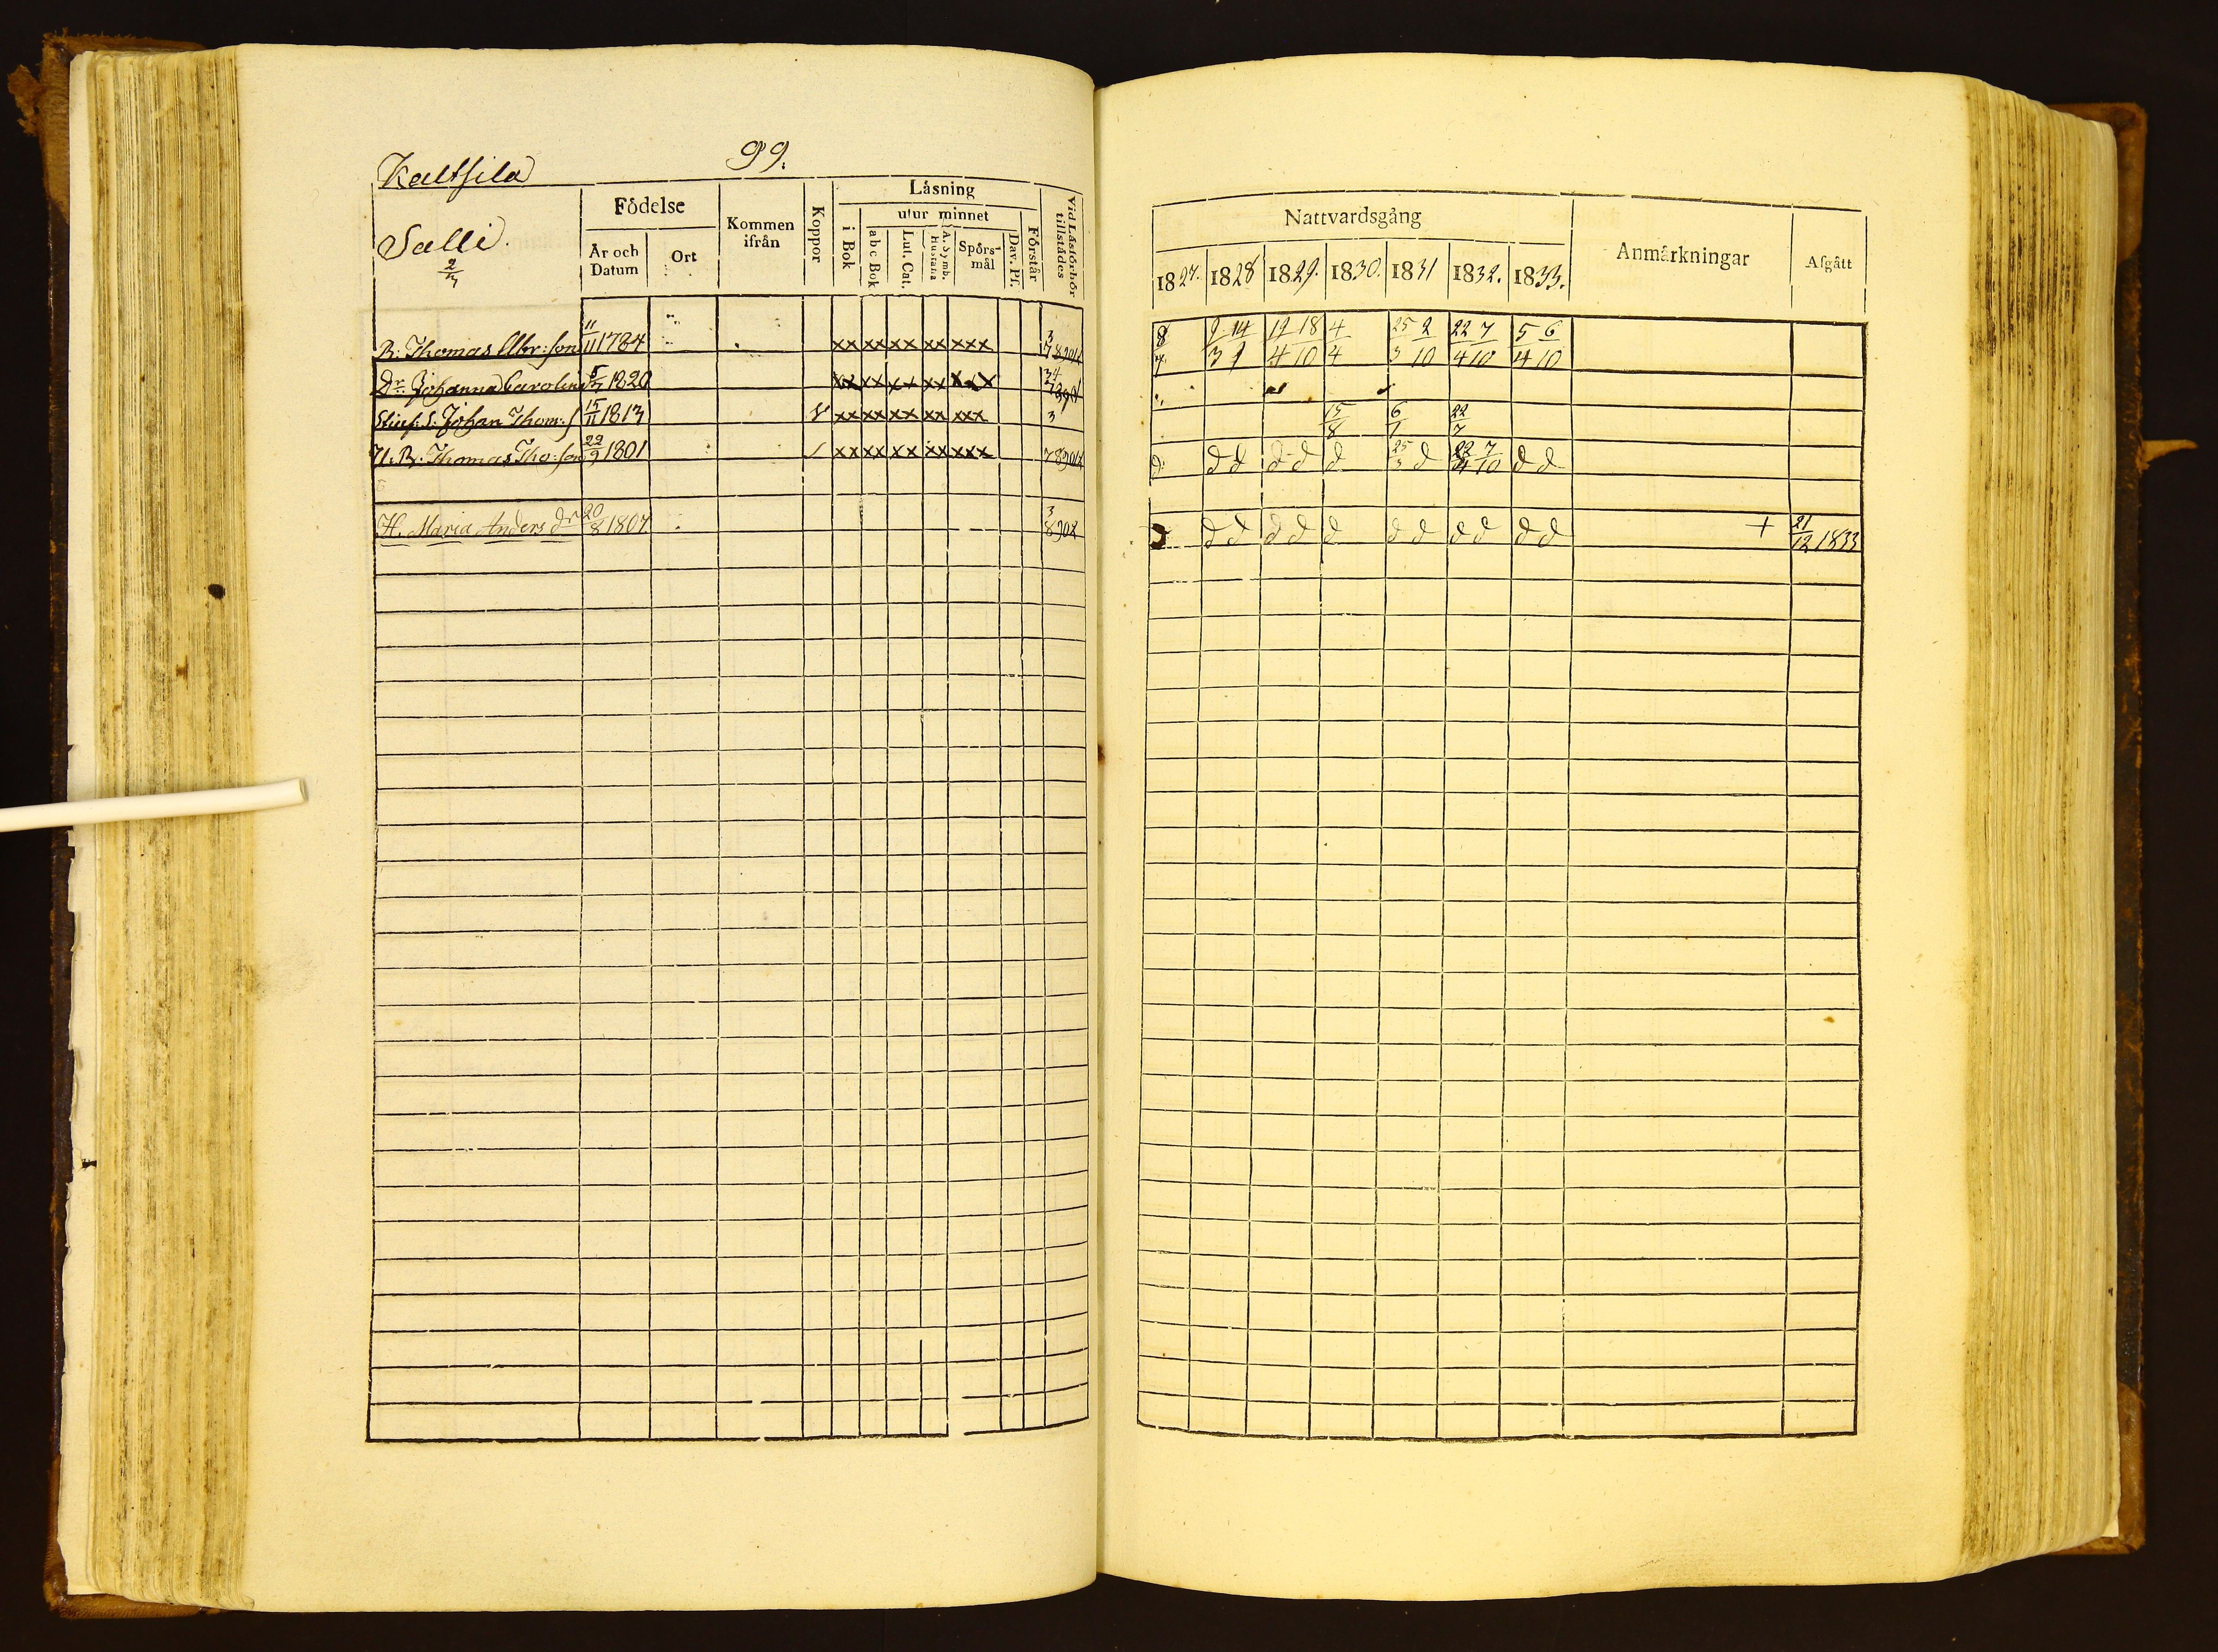 Kaltsila
99.
Salli.
2/3
Födelse
År och Datum
Ort
Kommen ifrån
Koppor
Läsning
i Bok
utur minnet
a b c Bok
Lut. Cat.
A. Symb. Hustafla
Spörsmål
Dav. Ps.
Förstår
Vid Läsförhör tillstädes
B. Thomas Abr: son 11/11 1784 xx xx xx xx xxx
Dr. Johanna Carolina 5/7 1820 xx xx xx xx xxx
Stiuf. S. Johan Thom: s 15/11 1813 xx xx xx xx xxx 3
N. B. Thomas Tho: son 22/9 1801 xx xx xx xx xxx
H. Maria Anders dr 20/8 1807
Nattvardsgång
1827. 1828 1829. 1830. 1831 1832. 1833.
Anmärkningar
Afgått
12/4 18/10 4/4 25/3 2/10 22/4 7/10 5/4 6/10
15/8 6/7 22/7
d d d d d d 25/3 d 22/4 7/10 d d
d d d d d d d d d d d + 21/12 1833